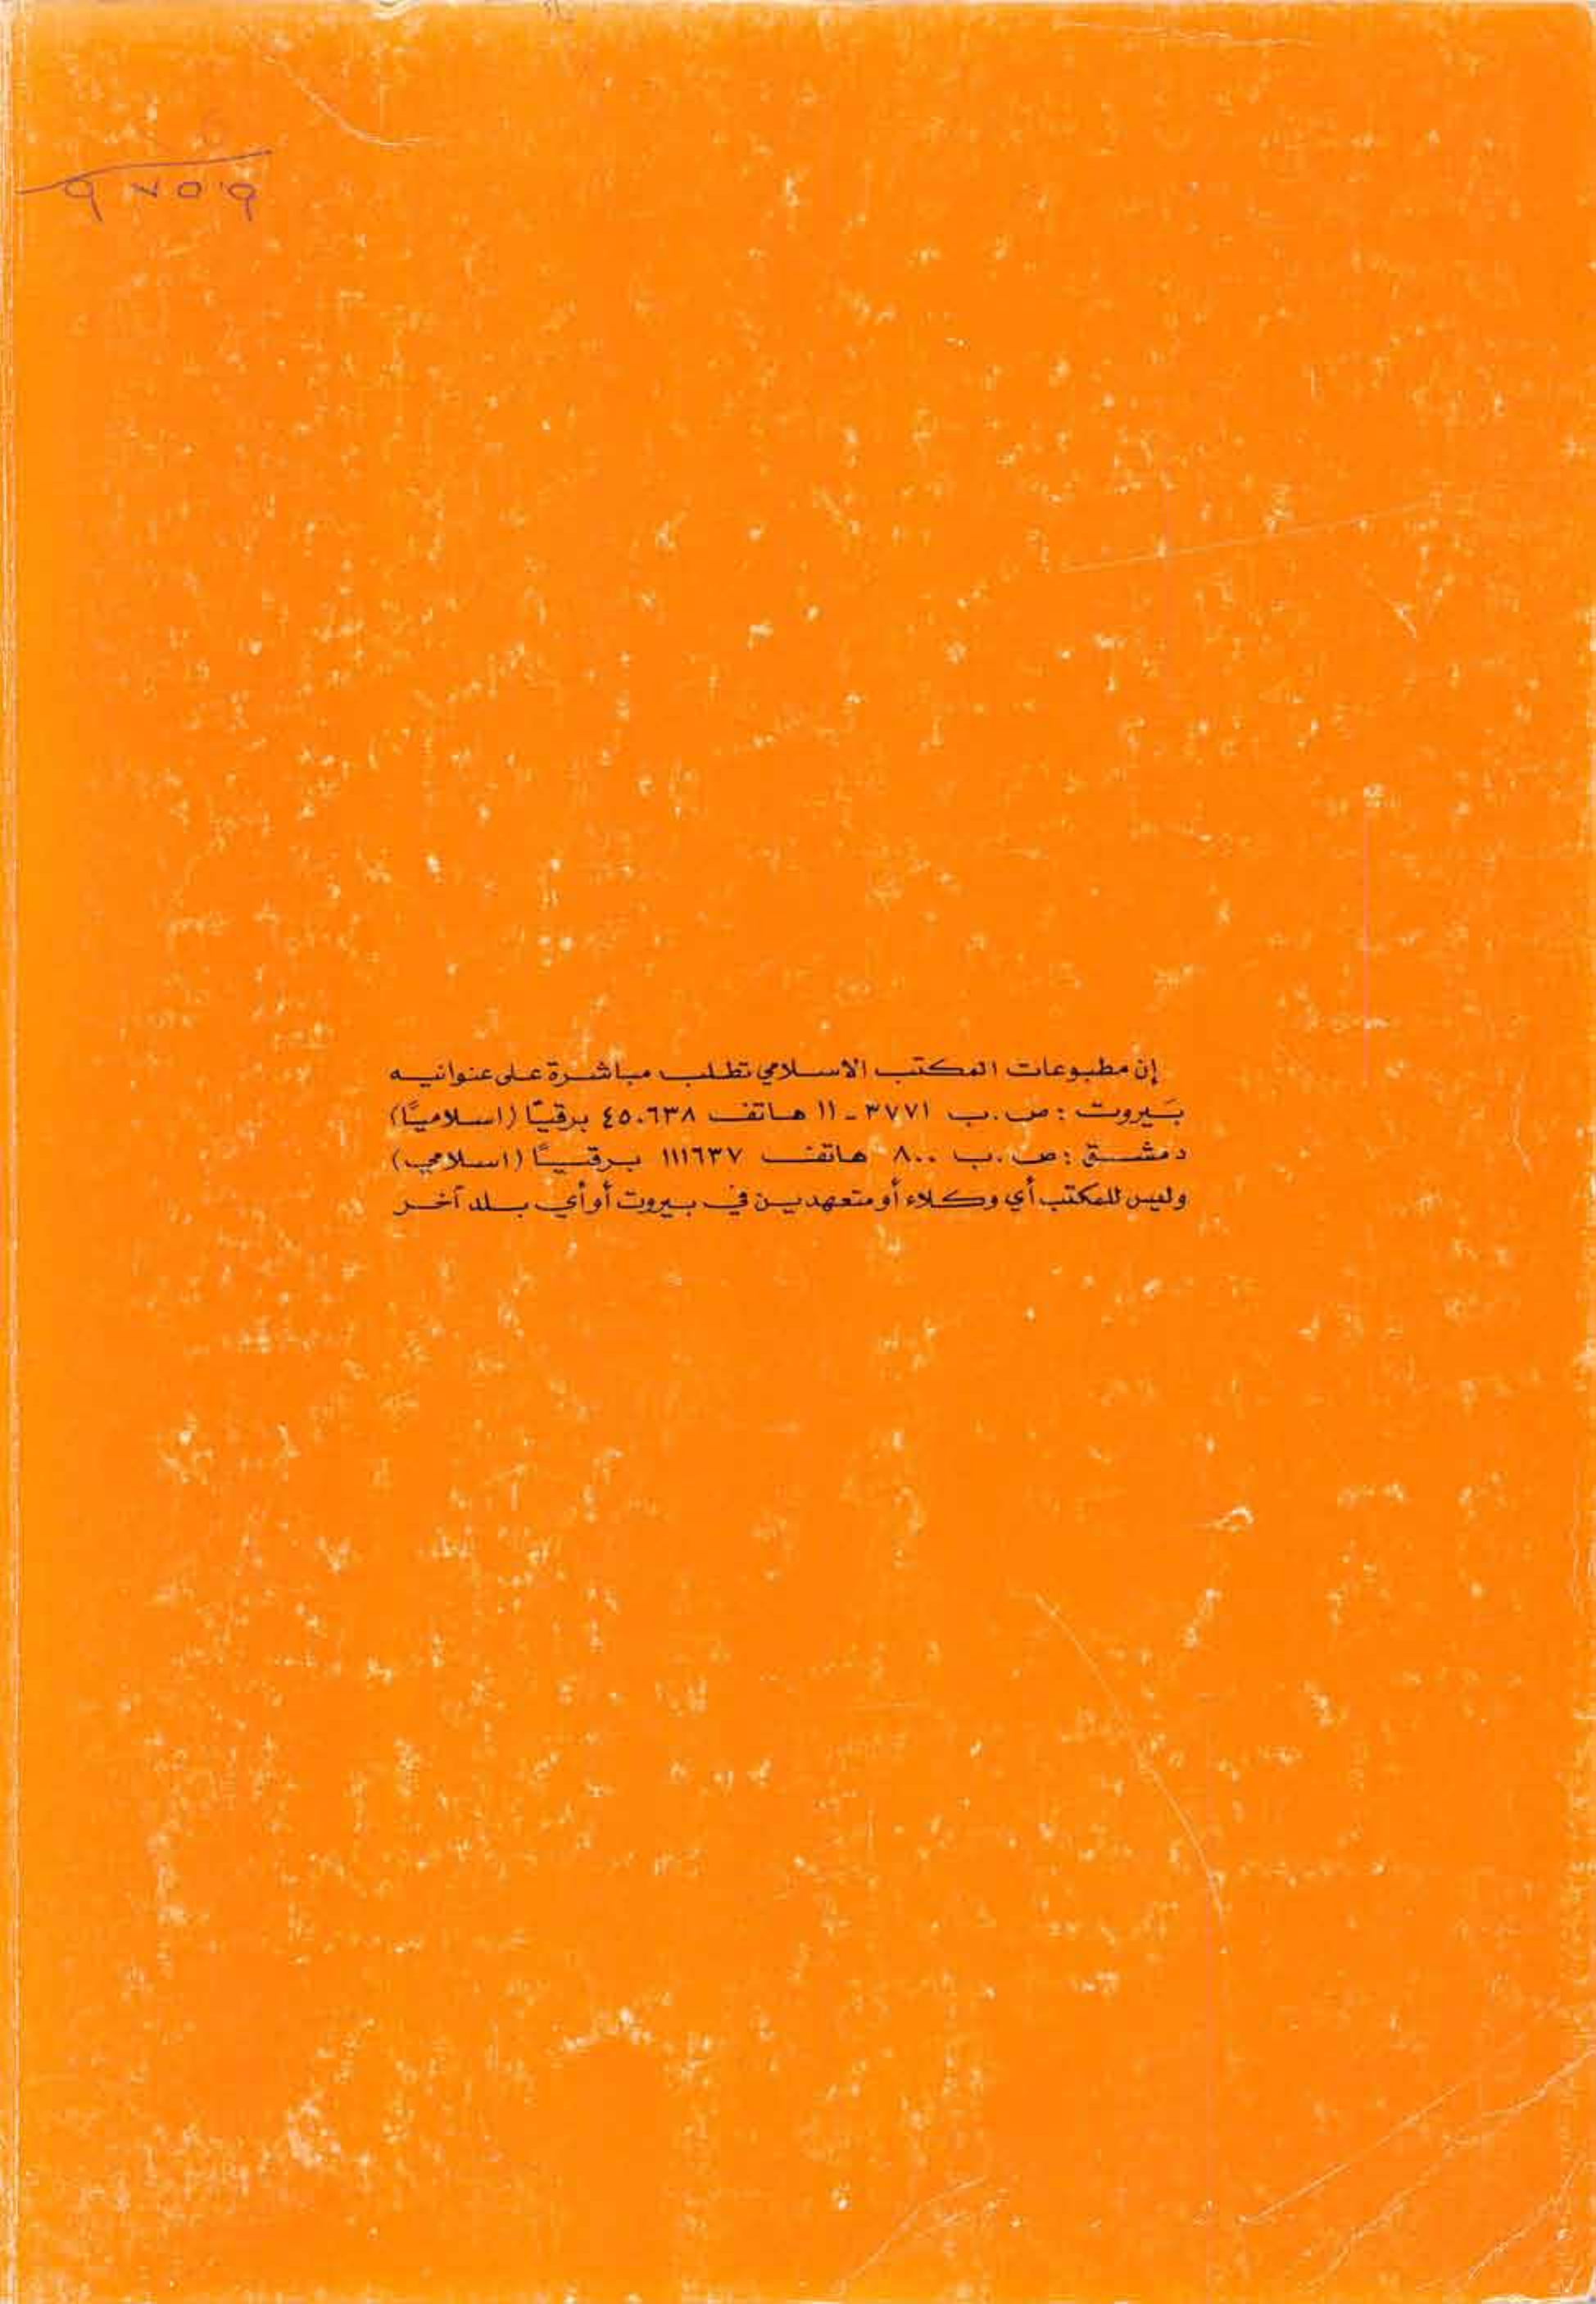 ٩٧٥٩
إن مطبوعات المكتب الاسلامي تطلب مباشرة على عنوانيه
بيروت : ص.ب ٣٧٧١ - ١١ هاتف ٤٥٠٦٣٨ برقيًا (اسلاميًا)
دمشق : ص.ب ٨٠٠ هاتف ١١١٦٣٧ برقيًا (اسلامي)
وليس للمكتب أي وكلاء أو متعهدين في بيروت أو أي بلد آخر